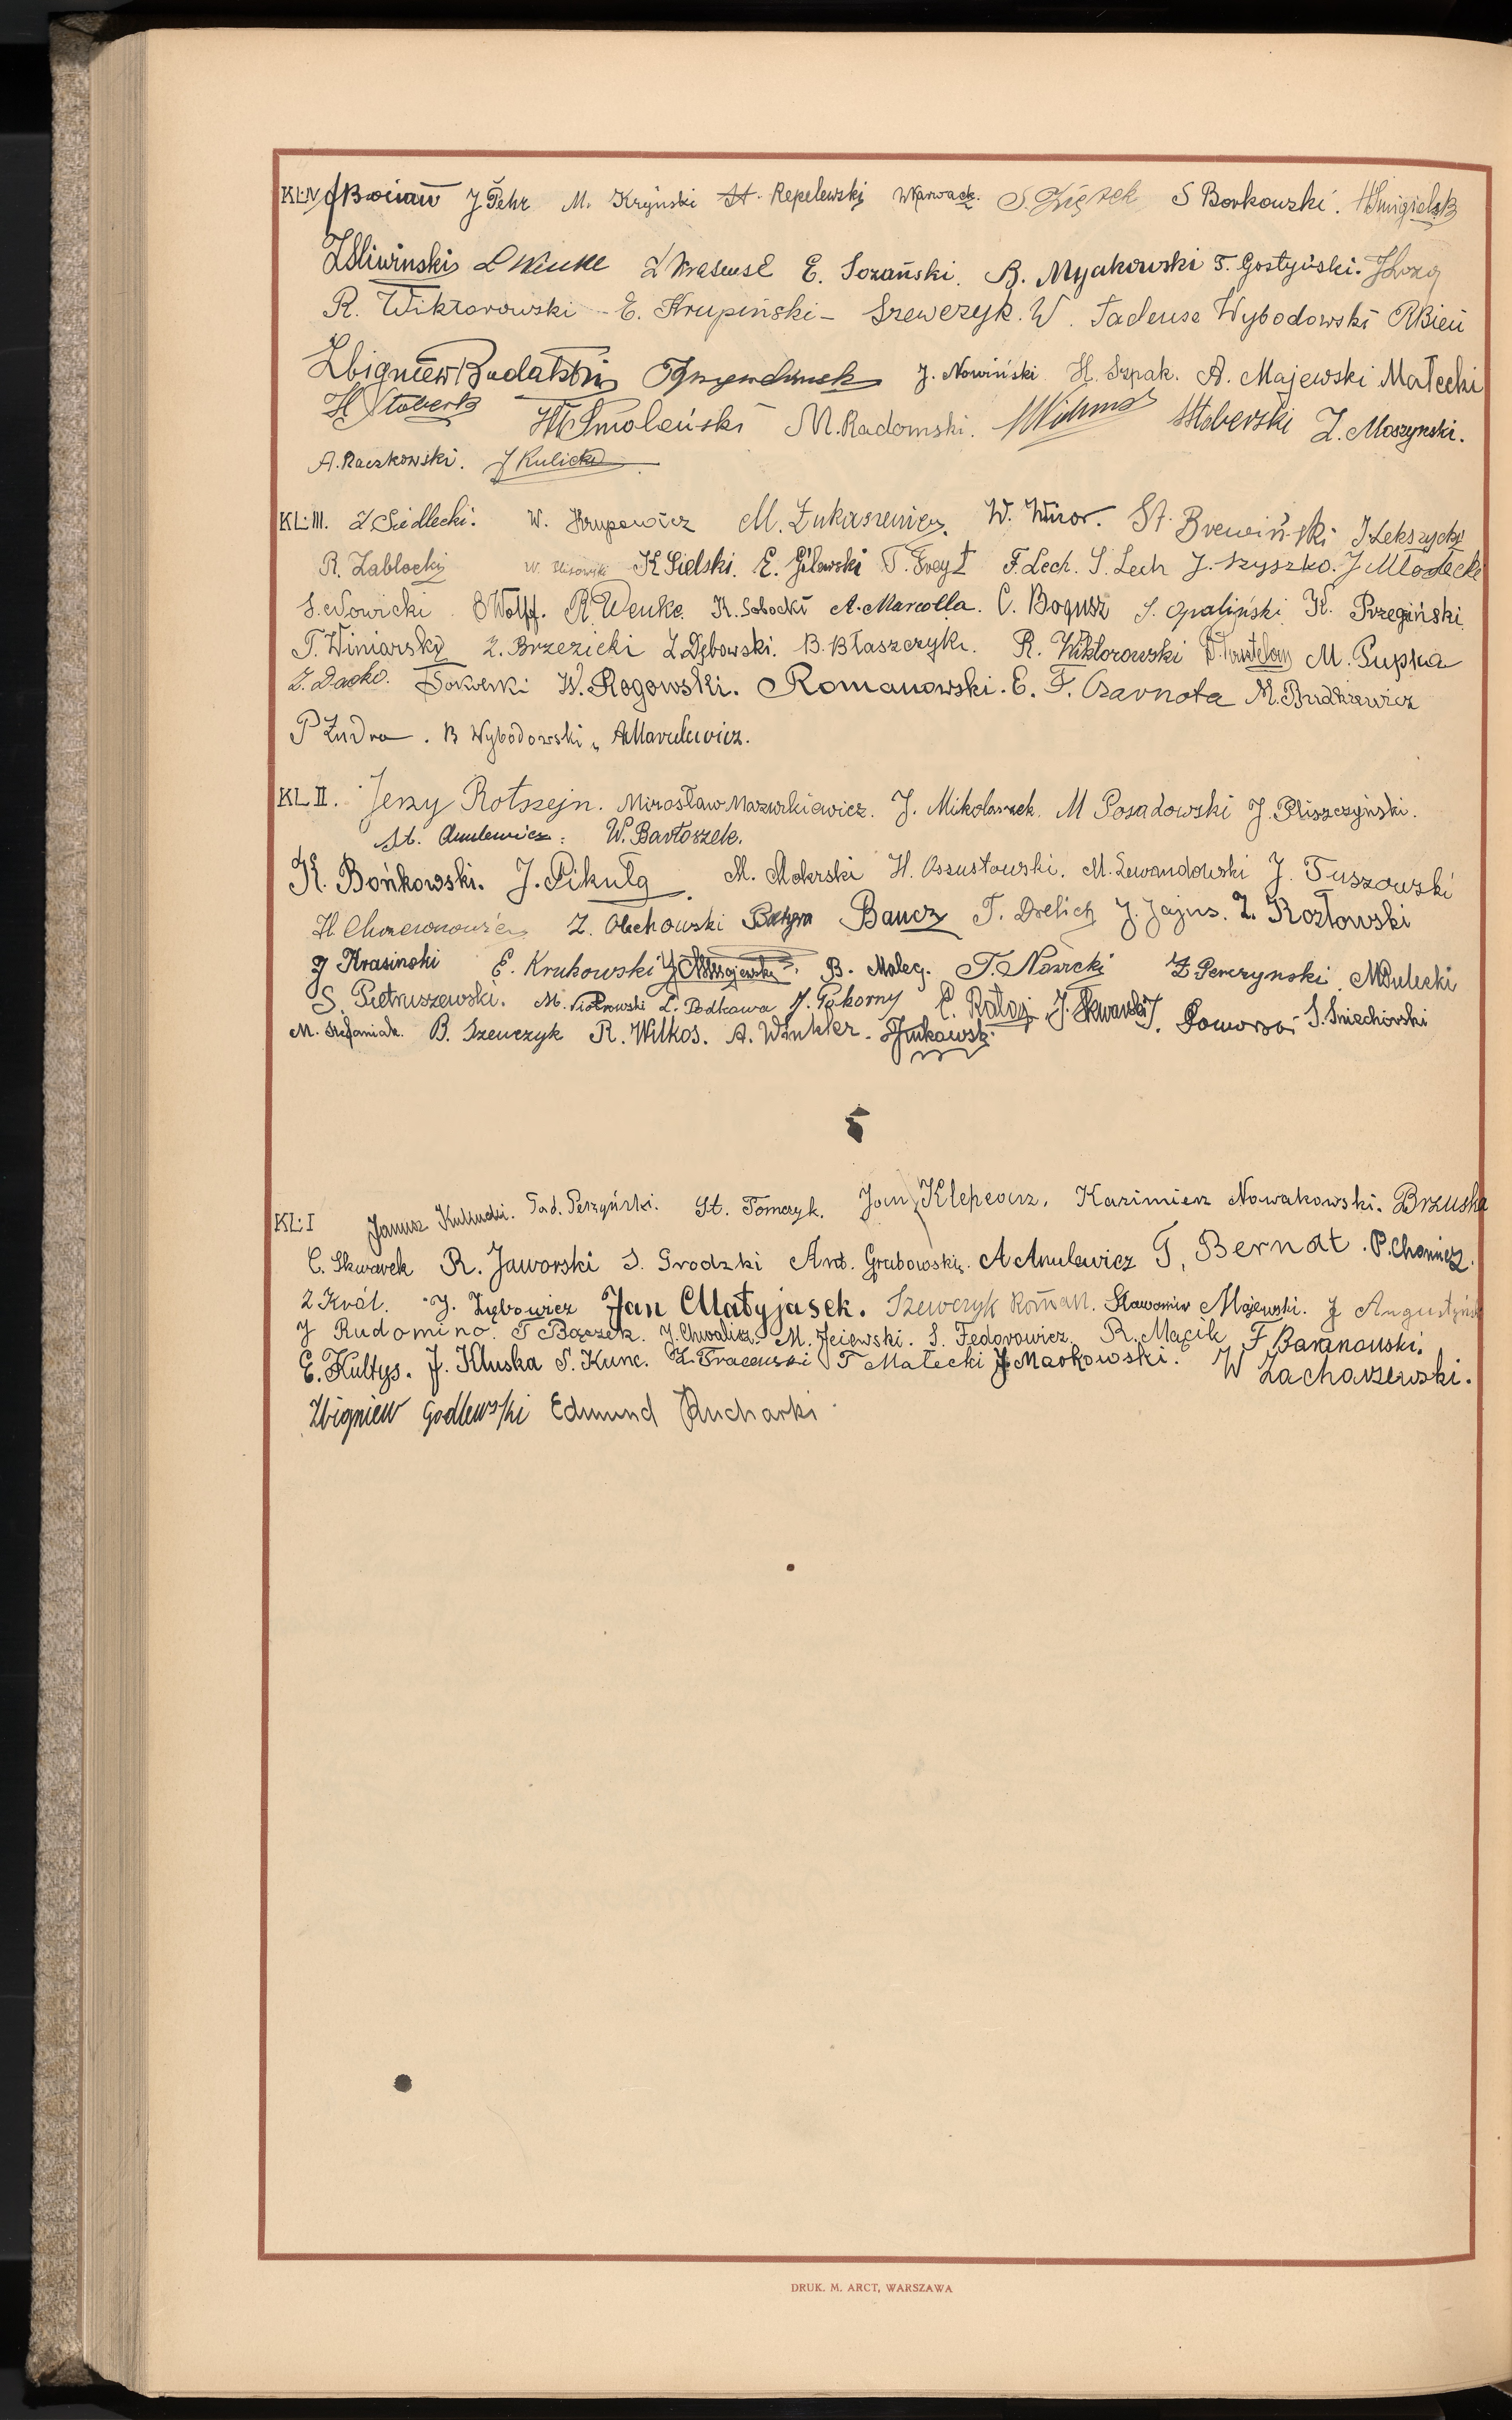 KL:IV J Pehr M. Kryński St. Repelewski WKarwack. S Borkowski. HŚmigielsk
ZŚliwinski E. Sozański. B. Myakowski T. Gostyński.
R. Wiktorowski - E. Krupiński - Szewczyk. W. Tadeusz Wybodowski RBień
Zbigniew J. Nowiński H. Szpak. A. Majewski Małecki
Smoleński M. Radomski. HStoberski Z. Moszynski.
A. Raczkowski. J Kulicki
KL:III. Z Siedlecki. W. Krupowicz M. Łukaszewicz. St. J. Lekszycki
R. Zabłocki K Sielski. E. Gilewski T. Freyt F. Lech. S. Lech J. Szyszko. J Młodecki
S. Nowicki Wolff. R. Wenke. K. Sobocki A. Marcolla. C. Bogusz S. Opaliński K. Przegiński
T. Winiarski Z. Brzezicki Z. Dębowski. B. Błaszczyk. R. Wiktorowski M. Pupka
W. Rogowski. Romanowski. E. F. Czarnota M. Budkiewicz
P Zudra. B Wybodowski, AMarulewicz.
KL II. Jerzy Rotszejn. Mirosław Mazurkiewicz. J. Mikołaszek. M Posadowski J. Pliszczyński.
St. Amulewicz. W. Bartoszek.
K. Bońkowski. J. Pikuła M. Mokrski H. Ossustowski. M. Lewandowski J. Tuszowski
Z. Olechowski Baczyn Baucz T. Drelich J. Jajus. Z. Kozłowski
J Krasinski E. Krukowski B. Maleg. T. Nowicki Z Perczynski. MPulecki
S. Pietruszewski. M. Piotrowski L. Podkowa J. Pokorny E. Rataj J. Skwarski J. Pomorski S. Śniechórski
M. Stefaniak. B. Szewczyk R. Wilkos. A. Winkler. Żukowski
KL: I Janusz Kulinicki. Tad. Perzyński. St. Tomczyk. Jan Klepcarz. Kazimierz Nowakowski. Brzuska
C. Skwarek R. Jaworski S. Grodzki Ant. Grabowski. A Amulewicz T. Bernat. P. Chomicz.
Z Król. J. Zębowicz Jan Matyjasek. Szewczyk Roman. Sławomir Majewski. J Augustyński
J Rudomino. T Bączek. J. Chwalisz. M. Jeżewski. S. Fedorowicz. R. Macik F Baranowski.
E. Kultys. J. Kluska S. Kunc. Z. Tracewski T Małecki J Markowski. W Zacharzewski.
Zbigniew Godlewski Edmund Kucharski
DRUK. M. ARCT, WARSZAWA